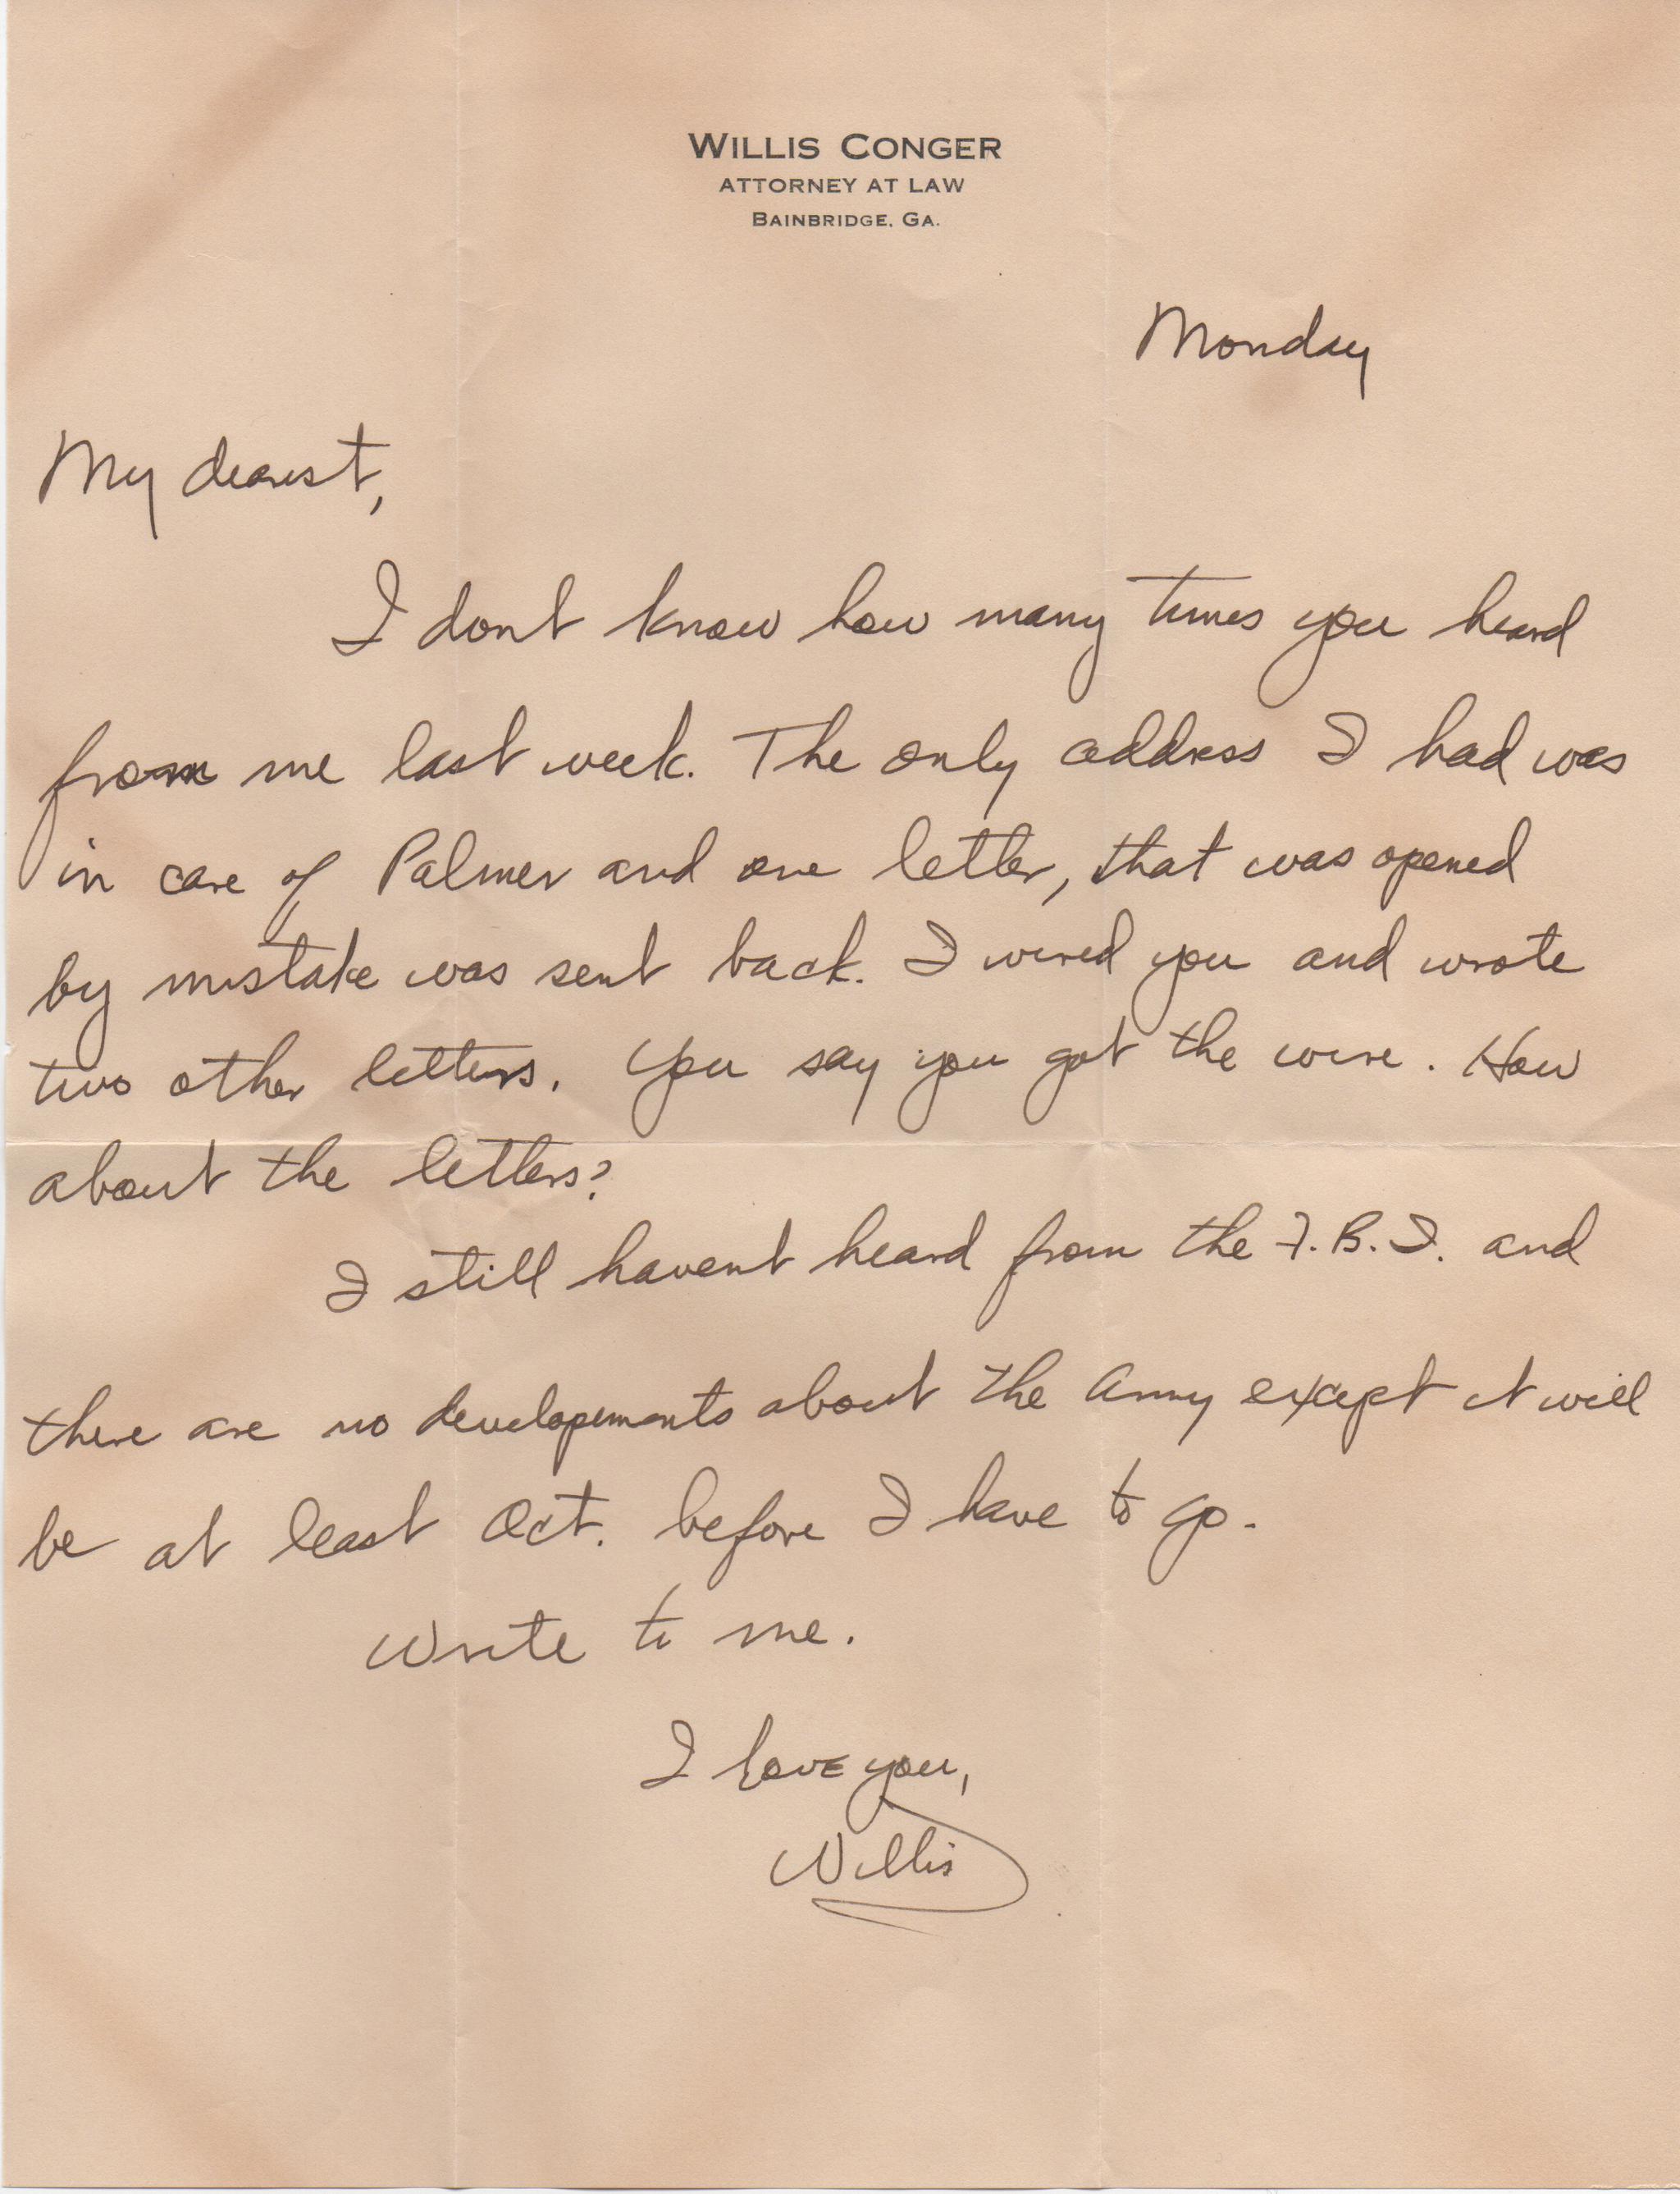 WILLIS CONGER
ATTORNEY AT LAW
BAINBRIDGE, GA.
Monday
My dearest,
I dont know how many times you heard
from me last week. The only address I had was
in care of Palmer and one letter, that was opened
by mistake was sent back. I wired you and wrote
two other letters. You say you got the wire. How
about the letters?
I still havent heard from the F.B.I. and
there are no developements about the Army except it will
be at least Oct. before I have to go.
Write to me.
I love you,
Willis